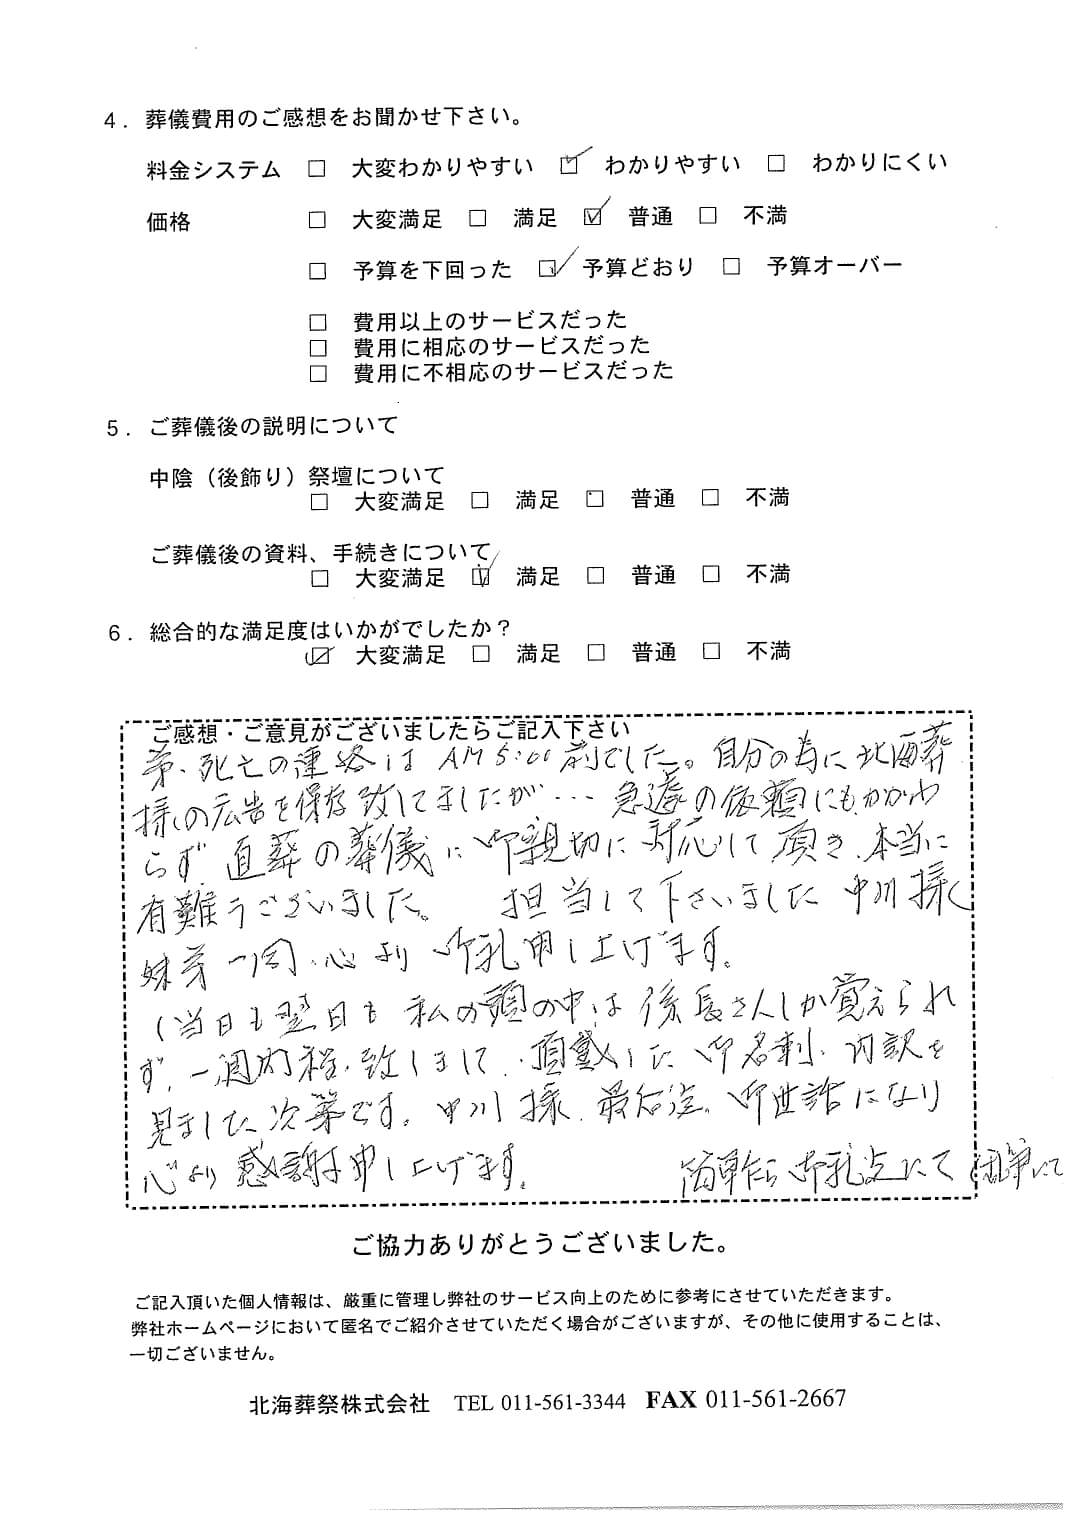 4．葬儀費用のご感想をお聞かせ下さい。
料金システム □ 大変わかりやすい ☑ わかりやすい □ わかりにくい
価格 □ 大変満足 □ 満足 ☑ 普通 □ 不満
□ 予算を下回った ☑ 予算どおり □ 予算オーバー
□ 費用以上のサービスだった
□ 費用に相応のサービスだった
□ 費用に不相応のサービスだった
5．ご葬儀後の説明について
中陰（後飾り）祭壇について
□ 大変満足 □ 満足 □ 普通 □ 不満
ご葬儀後の資料、手続きについて
□ 大変満足 ☑ 満足 □ 普通 □ 不満
6．総合的な満足度はいかがでしたか？
☑ 大変満足 □ 満足 □ 普通 □ 不満
ご感想・ご意見がございましたらご記入下さい
弟、死亡の連絡は AM 5:00 前でした。自分の為に北海葬
様の広告を保存致してましたが… 急遽の依頼にもかかわ
らず 直葬の葬儀に 御親切に 対応して頂き、本当に
有難うございました。 担当して下さいました 中川様
妹弟一同、心より 御礼申し上げます。
(当日も翌日も 私の頭の中は 係長さんしか覚えられ
ず、一週間程 致しまして、頂戴した 御名刺、内訳を
見ました次第です。中川様、最后迄、御世話になり
心より 感謝申し上げます。 簡単乍ら 御礼迄にて
ご協力ありがとうございました。
ご記入頂いた個人情報は、厳重に管理し弊社のサービス向上のために参考にさせていただきます。
弊社ホームページにおいて匿名でご紹介させていただく場合がございますが、その他に使用することは、
一切ございません。
北海葬祭株式会社 TEL 011-561-3344 FAX 011-561-2667